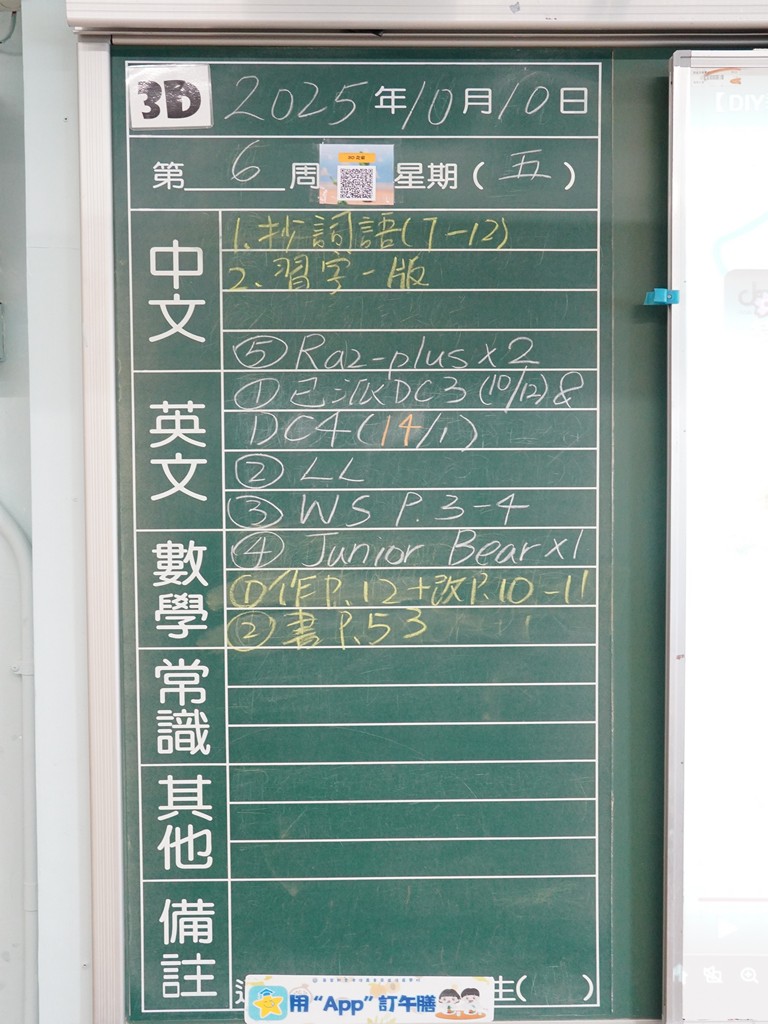 3D 2025年10月10日
第6周 星期(五)
中文
1. 抄詞語(7-12)
2. 習字一版
⑤ Raz-plus x 2
英文
① 已派DC3 (10/12) &
DC4 (14/1)
② LL
③ WS P.3-4
④ Junior Bear x1
數學
① 作P.12+改P.10-11
② 書P.53
常識
其他
備註
用“App”訂午膳
生( )
【DIY